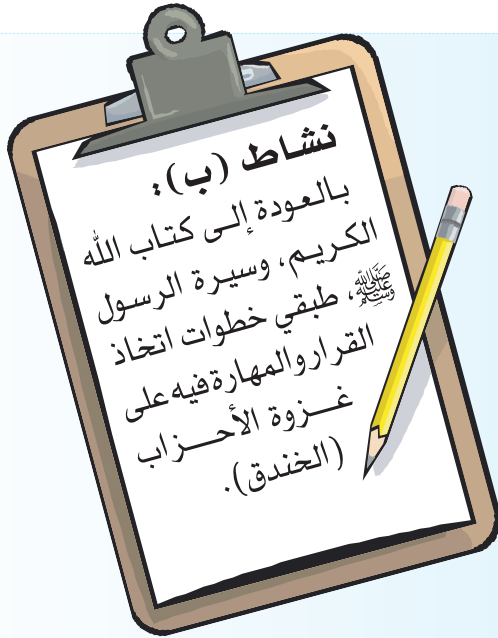 نشاط (ب):
بالعودة إلى كتاب الله
الكريم، وسيرة الرسول
ﷺ، طبقي خطوات اتخاذ
القرار والمهارة فيه على
غـزوة الأحـزاب
(الخندق).